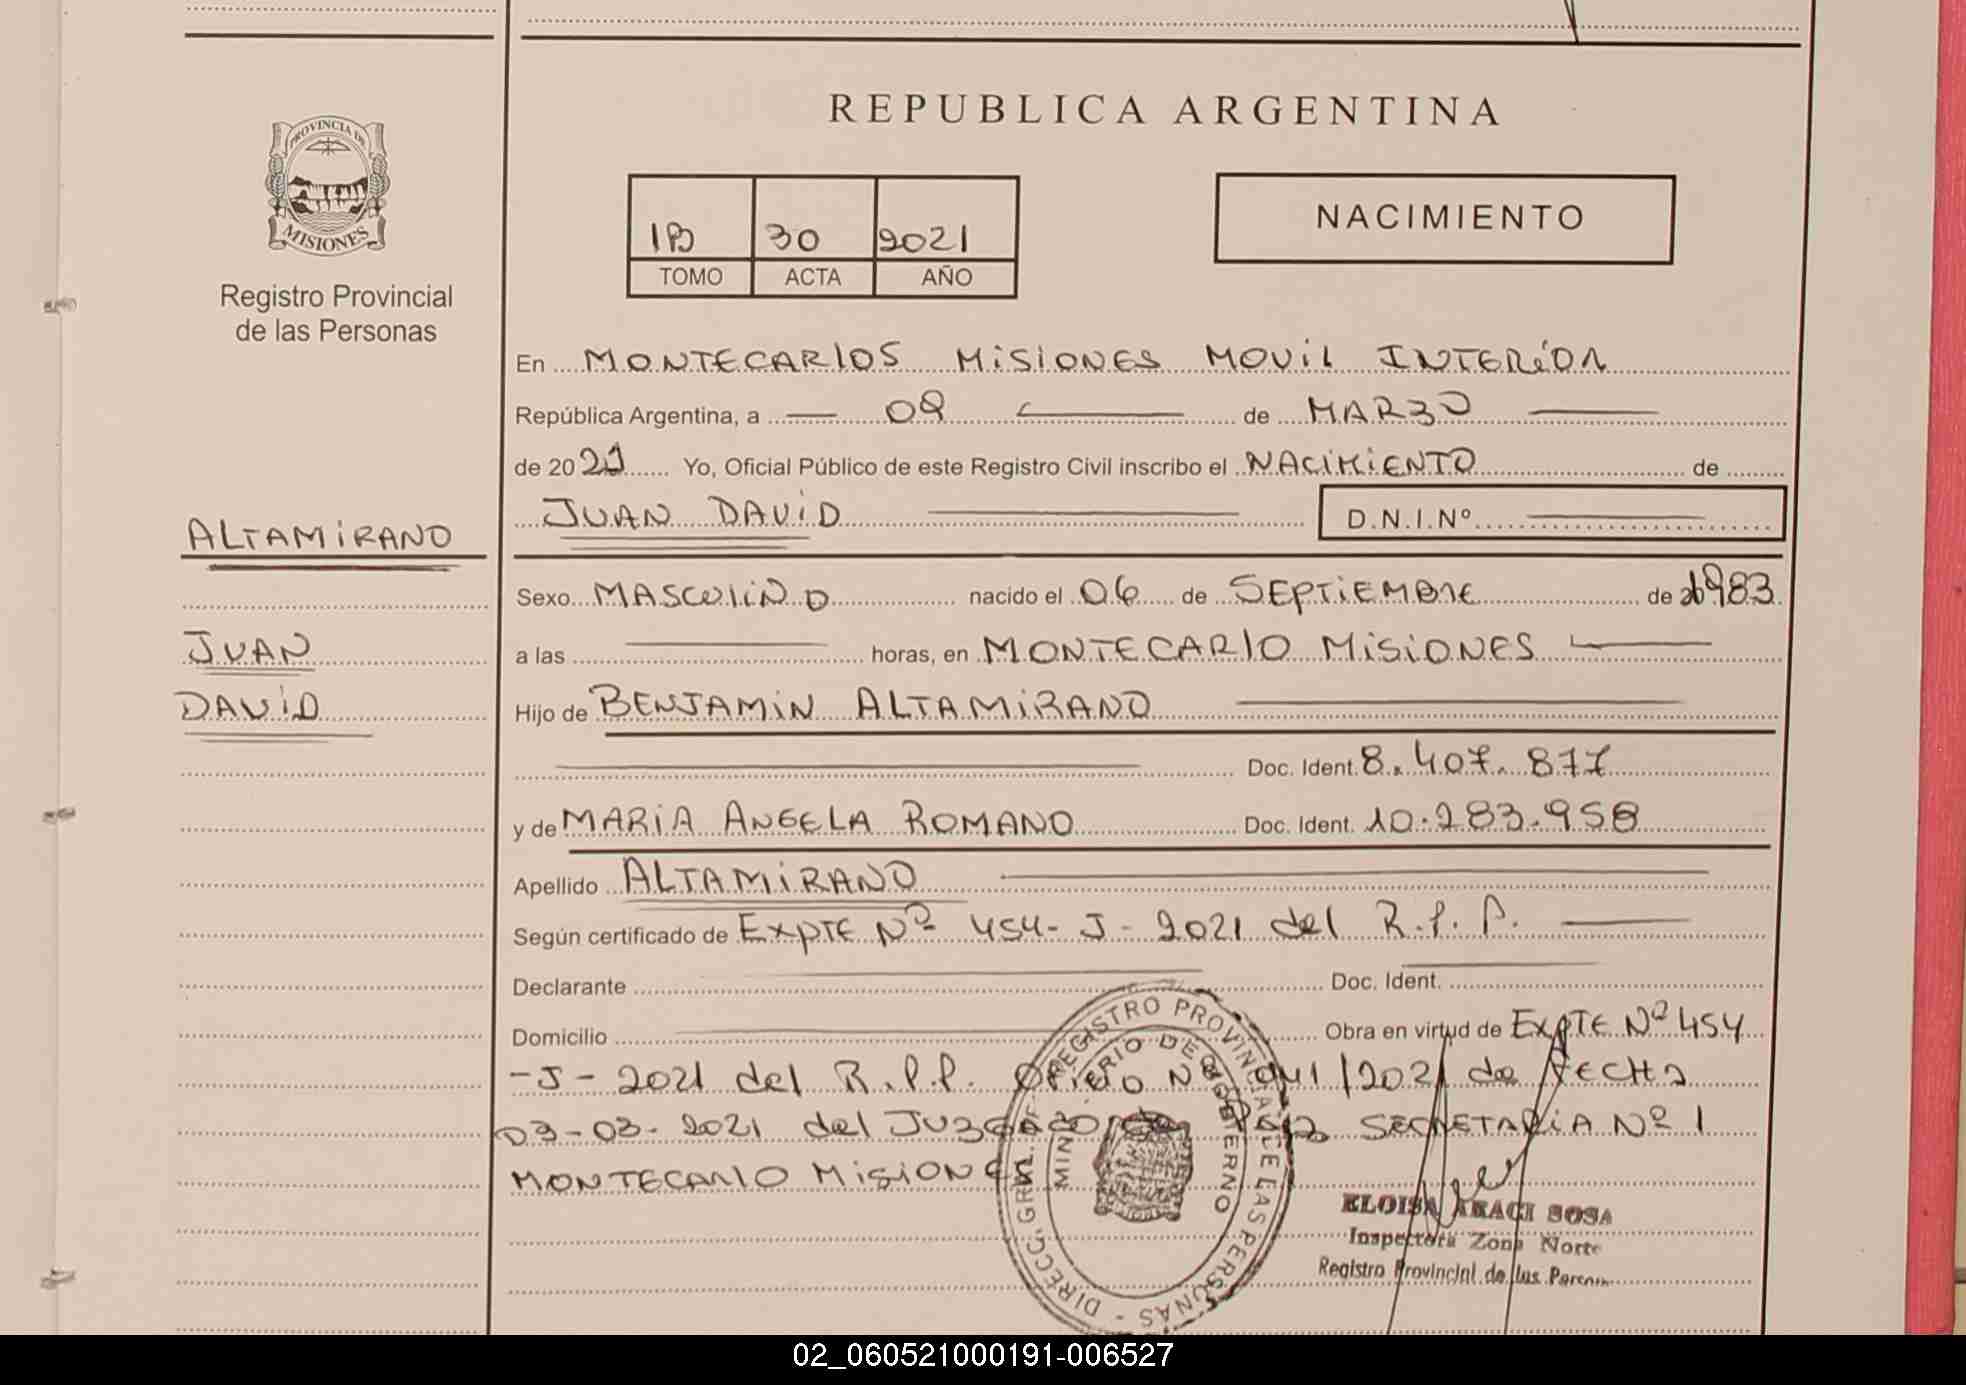 REPUBLICA ARGENTINA
PROVINCIA DE
MISIONES
Registro Provincial
de las Personas
1B 30 2021
TOMO ACTA AÑO
NACIMIENTO
En MONTECARLOS MISIONES MOVIL INTERIOR
República Argentina, a 08 de MARZO
de 2021 Yo, Oficial Público de este Registro Civil inscribo el NACIMIENTO de
JUAN DAVID D.N.I.Nº
ALTAMIRANO
Sexo MASCULINO nacido el 06 de SEPTIEMBRE de 1983
JUAN
a las horas, en MONTECARLO MISIONES
DAVID
Hijo de BENJAMIN ALTAMIRANO
Doc. Ident. 8.407.877
y de MARIA ANGELA ROMANO Doc. Ident. 10.283.958
Apellido ALTAMIRANO
Según certificado de EXPTE Nº 454-J-2021 del R.P.P.
Declarante Doc. Ident.
Domicilio Obra en virtud de EXPTE Nº 454
-J-2021 del R.P.P. OFICIO Nº 041/2021 de FECHA
03-03-2021 del JUZGADO de PAZ SECRETARIA Nº 1
MONTECARLO MISIONES
DIRECC. GRAL. DE REGISTRO PROVINCIAL DE LAS PERSONAS
MINISTERIO DE GOBIERNO
ELOISA ARACI SOSA
Inspectora Zona Norte
Registro Provincial de las Personas
02_060521000191-006527